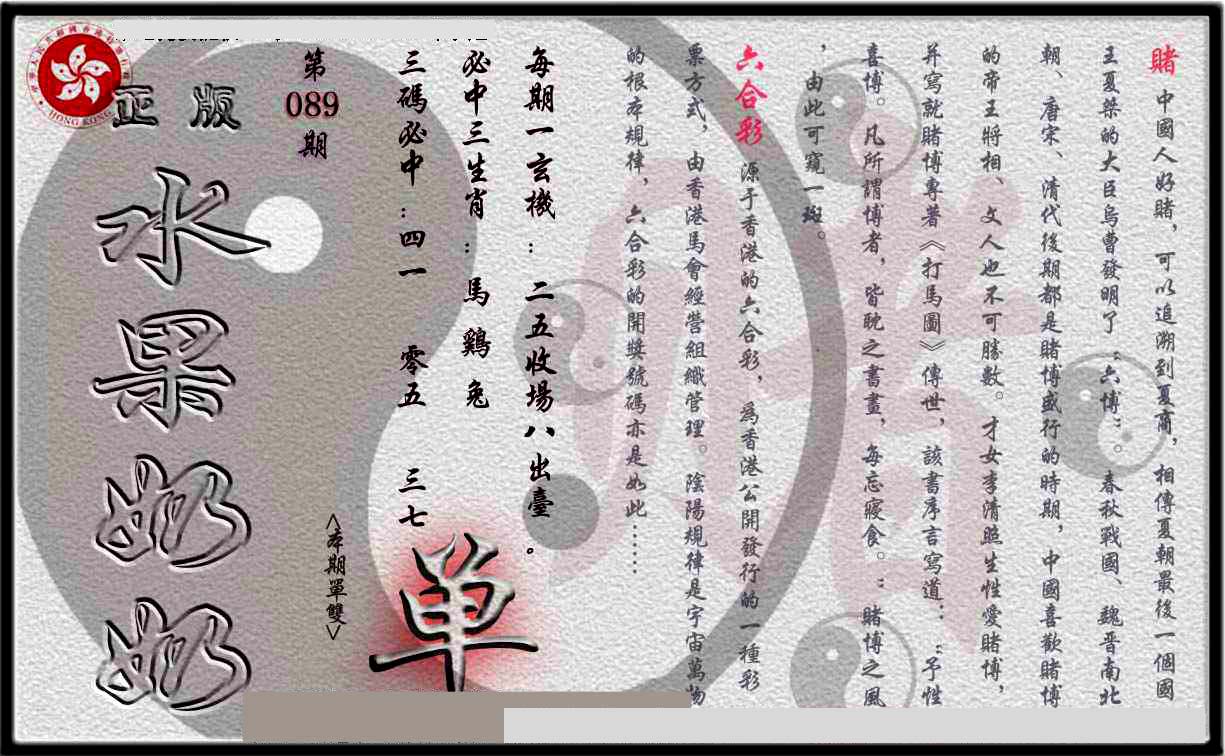 賭 中國人好賭，可以追溯到夏商，相傳夏朝最後一個國
王夏桀的大臣烏曹發明了“六博”。春秋戰國、魏晋南北
朝、唐宋、清代後期都是賭博盛行的時期，中國喜歡賭博
的帝王將相、文人也不可勝數。才女李清照生性愛賭博，
并寫就賭博專著《打馬圖》傳世，該書序言寫道：“予性
喜博。凡所謂博者，皆耽之書畫，每忘寢食。”賭博之風
，由此可窺一斑。
六合彩 源于香港的六合彩，爲香港公開發行的一種彩
票方式，由香港馬會經營組織管理。陰陽規律是宇宙萬物
的根本規律，六合彩的開獎號碼亦是如此……
每期一玄機：二五收場八出臺。
必中三生肖：馬 鷄 兔
三碼必中：四一 零五 三七
第
089
期
<本期單雙>
单
正版
水果奶奶
HONG KONG